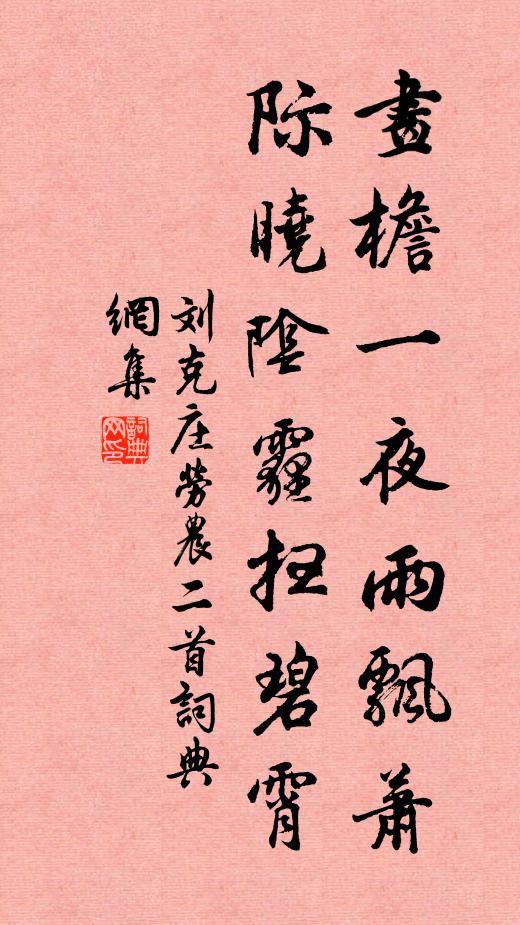 畫檐一夜雨飄蕭
际曉陰霾扫碧霄
刘克庄勞農二首詞典
網集
詞典
网印